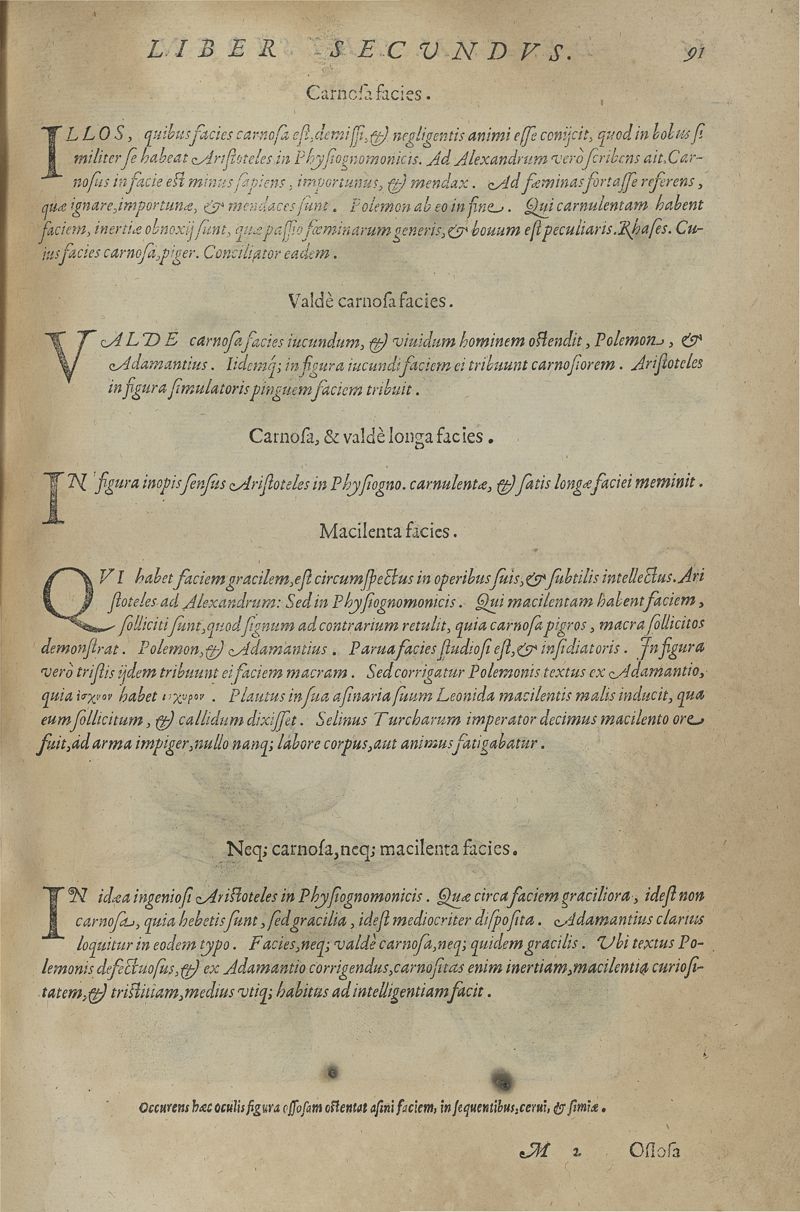 LIBER SECVNDVS. 91
Carnoſa facies.
ILLOS, quibus facies carnoſa eſt, demiſſi, & negligentis animi eſſe conijcit, quod in bobus ſi
militer ſe habeat Ariſtoteles in Phyſiognomonicis. Ad Alexandrum verò ſcribens ait. Car-
noſus in facie eſt minus ſapiens, importunus, & mendax. Ad fœminas fortaſſe referens,
quæ ignaræ, importunæ, & mendaces ſunt. Polemon ab eo in fine. Qui carnulentam habent
faciem, inertiæ obnoxij ſunt, quæ paſſio fœminarum generis, & bouum eſt peculiaris. Rhaſes. Cu-
ius facies carnoſa, piger. Conciliator eadem.
Valdè carnoſa facies.
VALDE carnoſa facies iucundum, & viuidum hominem oſtendit, Polemon, &
Adamantius. Iidemq; in figura iucundi faciem ei tribuunt carnoſiorem. Ariſtoteles
in figura ſimulatoris pinguem faciem tribuit.
Carnoſa, & valdè longa facies.
IN figura inopis ſenſus Ariſtoteles in Phyſiogno. carnulentæ, & ſatis longæ faciei meminit.
Macilenta facies.
QVI habet faciem gracilem, eſt circumſpectus in operibus ſuis, & ſubtilis intellectus. Ari
ſtoteles ad Alexandrum: Sed in Phyſiognomonicis. Qui macilentam habent faciem,
ſolliciti ſunt, quod ſignum ad contrarium retulit, quia carnoſa pigros, macra ſollicitos
demonſtrat. Polemon, & Adamantius. Parua facies ſtudioſi eſt, & inſidiatoris. In figura
verò triſtis ijdem tribuunt ei faciem macram. Sed corrigatur Polemonis textus ex Adamantio,
quia ἰσχνον habet ισχυρον. Plautus in ſua aſinaria ſuum Leonida macilentis malis inducit, qua
eum ſollicitum, & callidum dixiſſet. Selinus Turcharum imperator decimus macilento ore
fuit, ad arma impiger, nullo nanq; labore corpus, aut animus fatigabatur.
Neq; carnoſa, neq; macilenta facies.
IN idæa ingenioſi Ariſtoteles in Phyſiognomonicis. Quæ circa faciem graciliora, ideſt non
carnoſa, quia hebetis ſunt, ſed gracilia, ideſt mediocriter diſpoſita. Adamantius clarius
loquitur in eodem typo. Facies, neq; valdè carnoſa, neq; quidem gracilis. Vbi textus Po-
lemonis defectuoſus, & ex Adamantio corrigendus, carnoſitas enim inertiam, macilentia curioſi-
tatem, & triſtitiam, medius vtiq; habitus ad intelligentiam facit.
Occurens hæc oculis figura oſſoſam oſtentat aſini faciem, in ſequentibus, cerui, & ſimiæ.
M 2 Oſſoſa